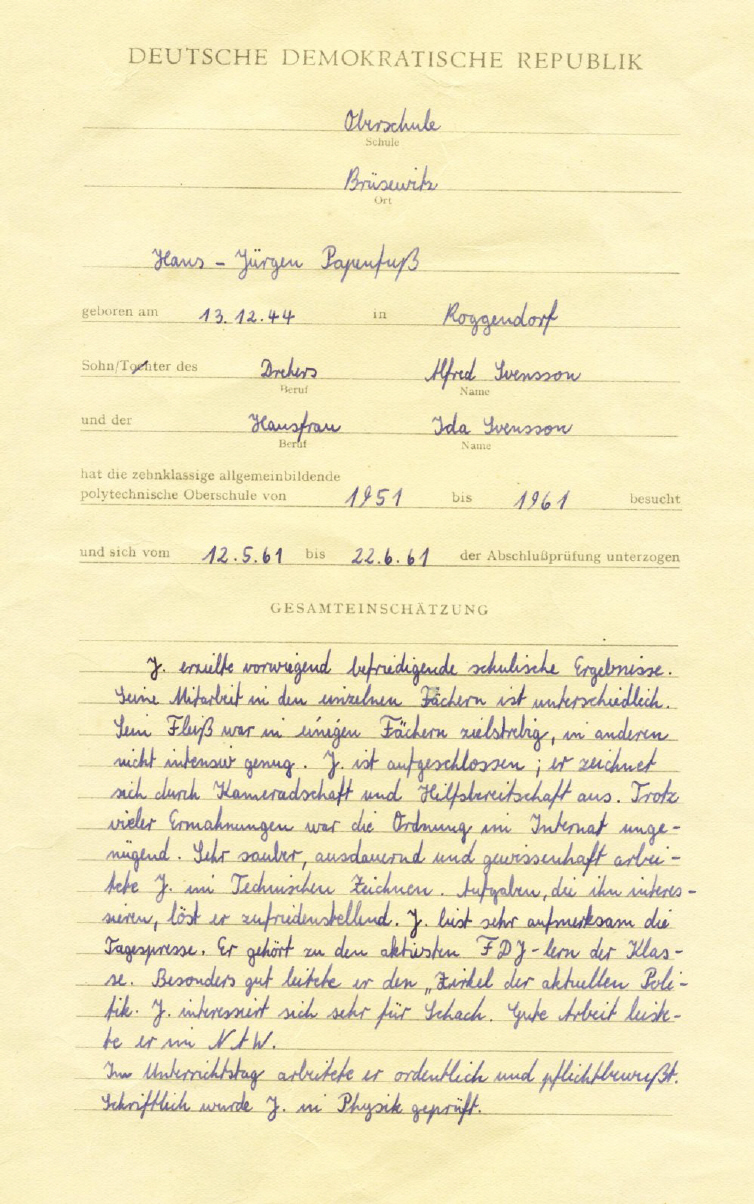 DEUTSCHE DEMOKRATISCHE REPUBLIK
Oberschule
Schule
Brüsewitz
Ort
Hans - Jürgen Papenfuß
geboren am 13.12.44 in Roggendorf
Sohn/Tochter des Drehers Alfred Svensson
Beruf Name
und der Hausfrau Ida Svensson
Beruf Name
hat die zehnklassige allgemeinbildende
polytechnische Oberschule von 1951 bis 1961 besucht
und sich vom 12.5.61 bis 22.6.61 der Abschlußprüfung unterzogen
GESAMTEINSCHÄTZUNG
J. erzielte vorwiegend befriedigende schulische Ergebnisse.
Seine Mitarbeit in den einzelnen Fächern ist unterschiedlich.
Sein Fleiß war in einigen Fächern zielstrebig, in anderen
nicht intensiv genug. J. ist aufgeschlossen; er zeichnet
sich durch Kameradschaft und Hilfsbereitschaft aus. Trotz
vieler Ermahnungen war die Ordnung im Internat unge-
nügend. Sehr sauber, ausdauernd und gewissenhaft arbei-
tete J. im Technischen Zeichnen. Aufgaben, die ihn interes-
sieren, löst er zufriedenstellend. J. liest sehr aufmerksam die
Tagespresse. Er gehört zu den aktivsten FDJ-lern der Klas-
se. Besonders gut leitete er den „Zirkel der aktuellen Poli-
tik. J. interessiert sich sehr für Schach. Gute Arbeit leiste-
te er im NAW.
Im Unterrichtstag arbeitete er ordentlich und pflichtbewußt.
Schriftlich wurde J. in Physik geprüft.